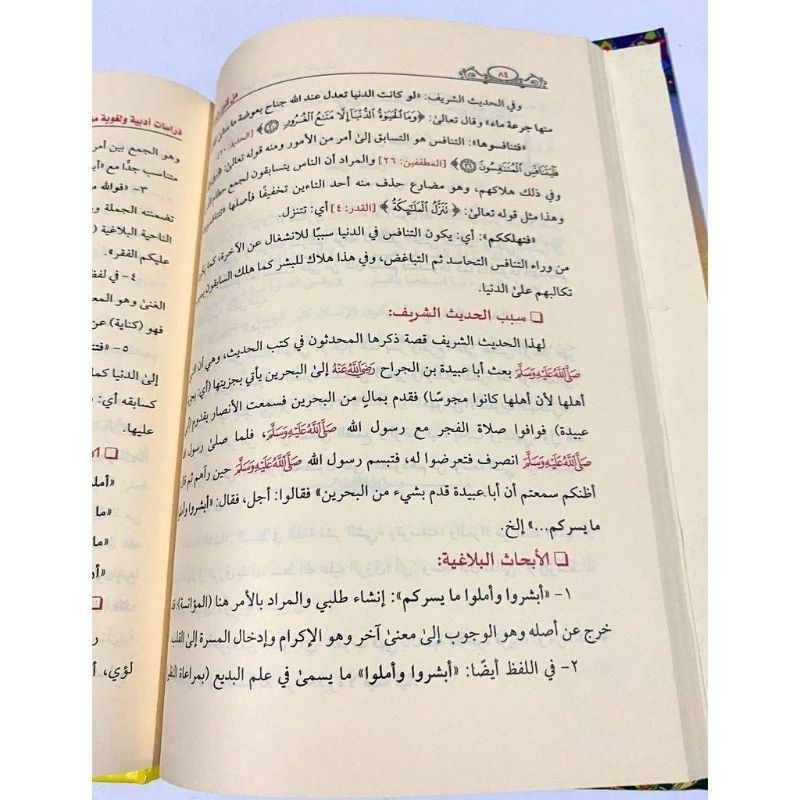 ٨٤
وفي الحديث الشريف: «لو كانت الدنيا تعدل عند الله جناح بعوضة ما سقى
منها جرعة ماء» وقال تعالىٰ: ﴿وَمَا الْحَيَوٰةُ الدُّنْيَا إِلَّا مَتَٰعُ الْغُرُورِ ۝٢٠﴾ [الحديد: ٢٠]
«فتنافسوها»: التنافس هو التسابق إلىٰ أمر من الأمور ومنه قوله تعالىٰ:
فَلْيَتَنَافَسِ الْمُتَنَٰفِسُونَ ۝٢٦﴾ [المطففين: ٢٦] والمراد أن الناس يتسابقون لجمع حطام
وفي ذلك هلاكهم، وهو مضارع حذف منه أحد التاءين تخفيفًا فأصلها «فتتنافسوها»
وهذا مثل قوله تعالىٰ: ﴿تَنَزَّلُ الْمَلَٰٓئِكَةُ﴾ [القدر: ٤] أي: تتنزل.
«فتهلككم»: أي: يكون التنافس في الدنيا سببًا للانشغال عن الآخرة، كما يكون
من وراء التنافس التحاسد ثم التباغض، وفي هذا هلاك للبشر كما هلك السابقون بسبب
تكالبهم علىٰ الدنيا.
❑ سبب الحديث الشريف:
لهذا الحديث الشريف قصة ذكرها المحدثون في كتب الحديث، وهي أن
صَلَّى اللَّهُ عَلَيْهِ وَسَلَّمَ بعث أبا عبيدة بن الجراح رَضِيَ اللَّهُ عَنْهُ إلىٰ البحرين يأتي بجزيتها (أي:
أهلها لأن أهلها كانوا مجوسًا) فقدم بمال من البحرين فسمعت الأنصار بقدوم
عبيدة) فوافوا صلاة الفجر مع رسول الله صَلَّى اللَّهُ عَلَيْهِ وَسَلَّمَ، فلما صلىٰ رسول
صَلَّى اللَّهُ عَلَيْهِ وَسَلَّمَ انصرف فتعرضوا له، فتبسم رسول الله صَلَّى اللَّهُ عَلَيْهِ وَسَلَّمَ حين رآهم ثم
أظنكم سمعتم أن أبا عبيدة قدم بشيء من البحرين» فقالوا: أجل، فقال: «أبشروا وأملوا
ما يسركم...» إلخ.
❑ الأبحاث البلاغية:
١- «أبشروا وأملوا ما يسركم»: إنشاء طلبي والمراد بالأمر هنا (المؤانسة)؛
خرج عن أصله وهو الوجوب إلىٰ معنىٰ آخر وهو الإكرام وإدخال المسرة إلىٰ القلب
٢- في اللفظ أيضًا: «أبشروا وأملوا» ما يسمىٰ في علم البديع (بمراعاة
دراسات أدبية ولغوية
وهو الجمع بين أمر
متناسب جدًّا مع
٣- «فوالله
تضمنته الجملة
الناحية البلاغية
عليكم الفقر».
٤- في لفظ
الغنىٰ وهو المعن
فهو (كناية) عن
٥-
إلىٰ الدنيا كما
كسابقه أي:
عليها.
لؤي،